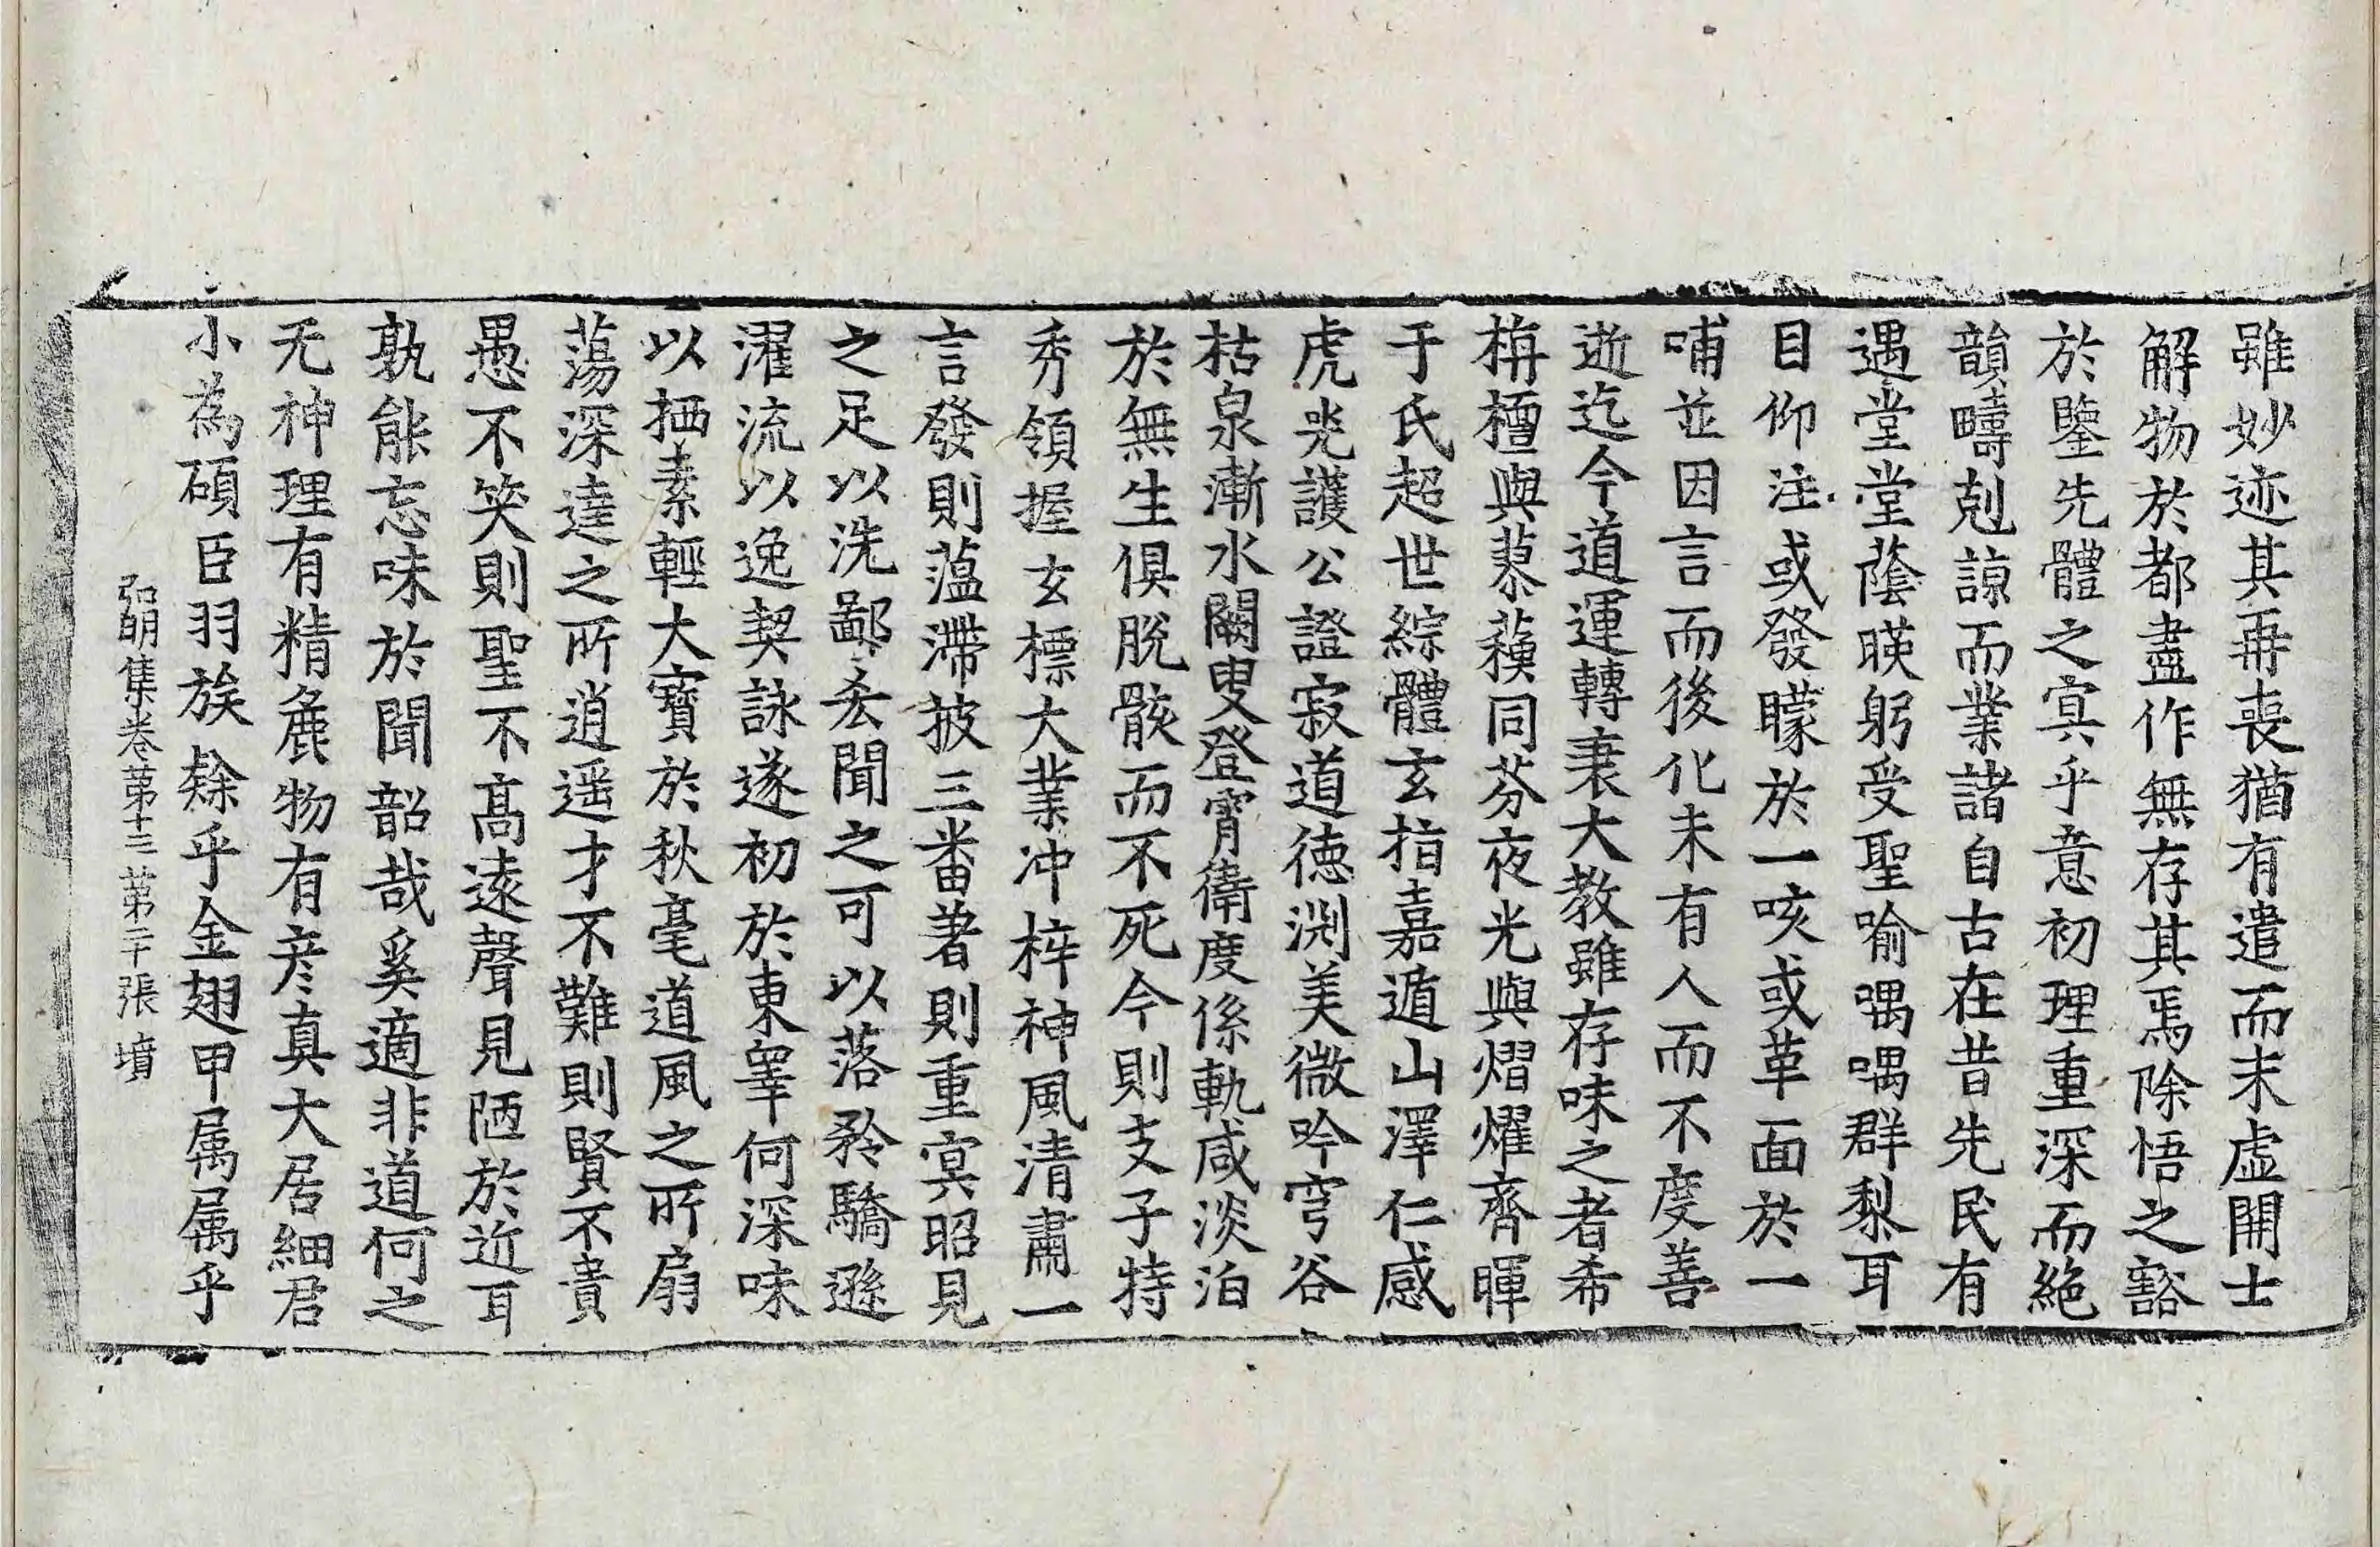 雖妙迹其再喪猶有遣而未虛開士
解物於都盡作無存其焉除悟之豁
於鑒先體之寘乎意初理重深而絕
韻疇剋諒而業諸自古在昔先民有
遇堂堂蔭暎躬受聖喻喁喁群梨耳
目仰注或發矇於一咳或革面於一
哺並因言而後化未有人而不度善
逝迄今道運轉衰大教雖存味之者希
栴檀與蒸蘓同芬夜光與熠燿齊暉
于氏超世綜體玄指嘉遁山澤仁感
虎兕護公證寂道德渊美微吟穹谷
枯泉漸水闕叟登霄衛度係軌咸淡泊
於無生俱脫骸而不死今則支子特
秀領握玄標大業冲梓神風清肅一
言發則蕰滯披三番著則重寘昭見
之足以洗鄙𠫤聞之可以落矜驕遜
濯流以逸契詠遂初於東睪何深味
以栖素輕大寶於秋毫道風之所扇
蕩深達之所逍遥才不難則賢不貴
愚不笑則聖不高遠聲見陋於近耳
孰能忘味於聞韶哉奚適非道何之
无神理有精麁物有彦真大居細君
小為碩臣羽族餘乎金翅甲属属乎
弘明集卷苐十三 苐二十張 墳